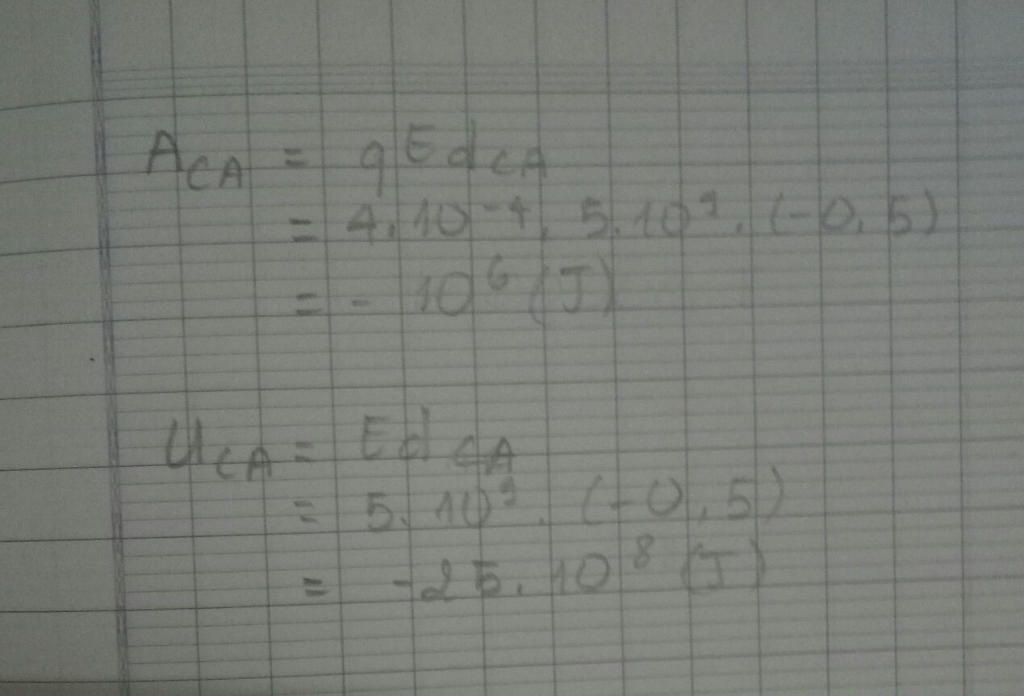 A_CA = qEd_CA
= 4.10^-4. 5.10^9. (-0,5)
= - 10^6 (J)
U_CA = Ed_CA
= 5.10^9. (-0,5)
= -25.10^8 (J)